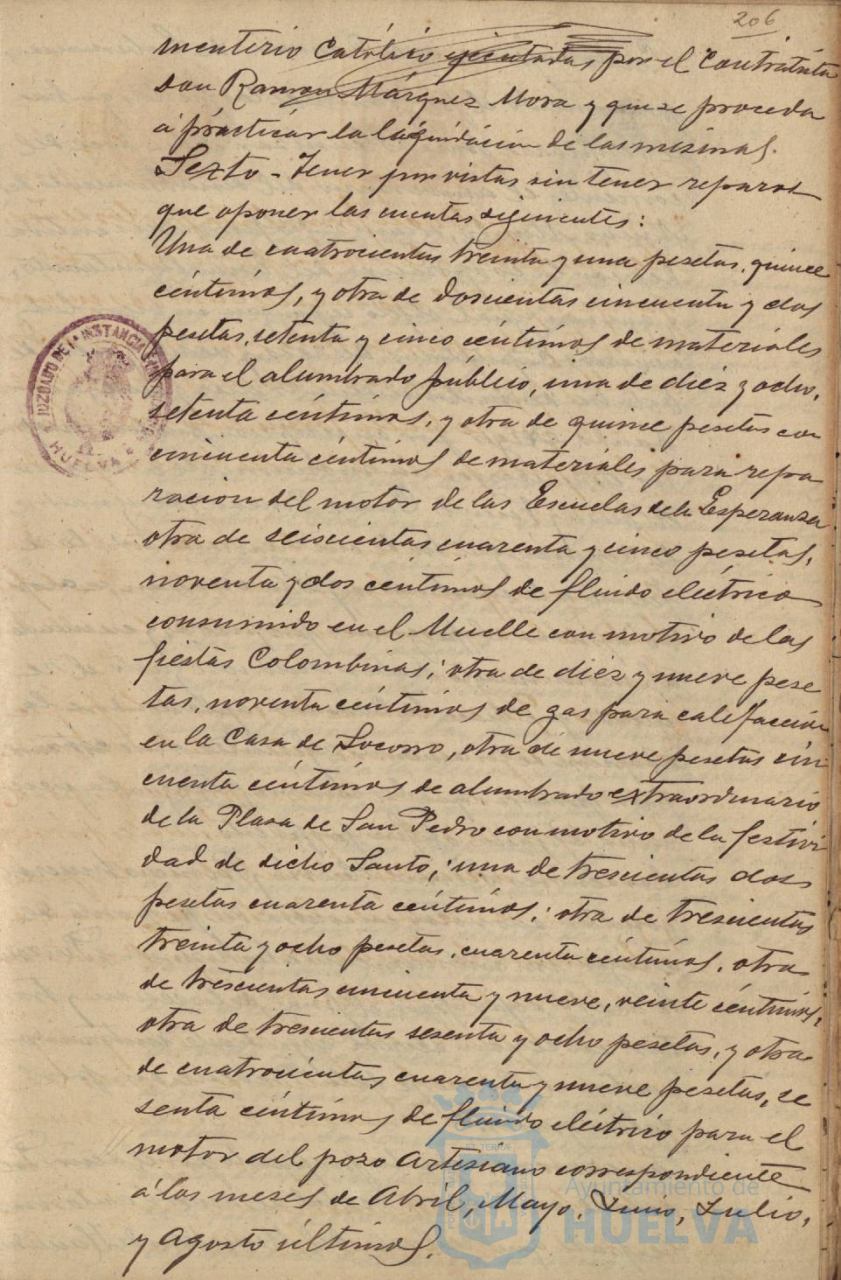 206
menterio Católico ejecutadas por el Contratista
Don Ramon Márquez Mora y que se proceda
á practicar la liquidacion de las mismas.
Sexto - Tener por vistas sin tener reparos
que oponer las cuentas siguientes:
Una de cuatrocientas treinta y una pesetas, quince
céntimos, y otra de doscientas cincuenta y dos
pesetas, setenta y cinco céntimos de materiales
para el alumbrado público, una de diez y ocho,
setenta céntimos, y otra de quince pesetas con
cincuenta céntimos de materiales para repa
racion del motor de las Escuelas de la Esperanza
otra de seiscientas cuarenta y cinco pesetas,
noventa y dos céntimos de fluido eléctrico
consumido en el Muelle con motivo de las
fiestas Colombinas; otra de diez y nueve pese
tas, noventa céntimos de gas para calefacción
en la Casa de Socorro, otra de nueve pesetas cin
cuenta céntimos de alumbrado extraordinario
de la Plaza de San Pedro con motivo de la festivi
dad de dicho Santo; una de trescientas dos
pesetas cuarenta céntimos; otra de trescientas
treinta y ocho pesetas, cuarenta céntimos, otra
de trescientas cincuenta y nueve, veinte céntimos,
otra de trescientas sesenta y ocho pesetas, y otra
de cuatrocientas cuarenta y nueve pesetas, se
senta céntimos de fluido eléctrico para el
motor del pozo Artesiano correspondiente
á los meses de Abril, Mayo, Junio, Julio,
y Agosto últimos.
JUZGADO DE 1ª INSTANCIA
HUELVA
Ayuntamiento de
HUELVA